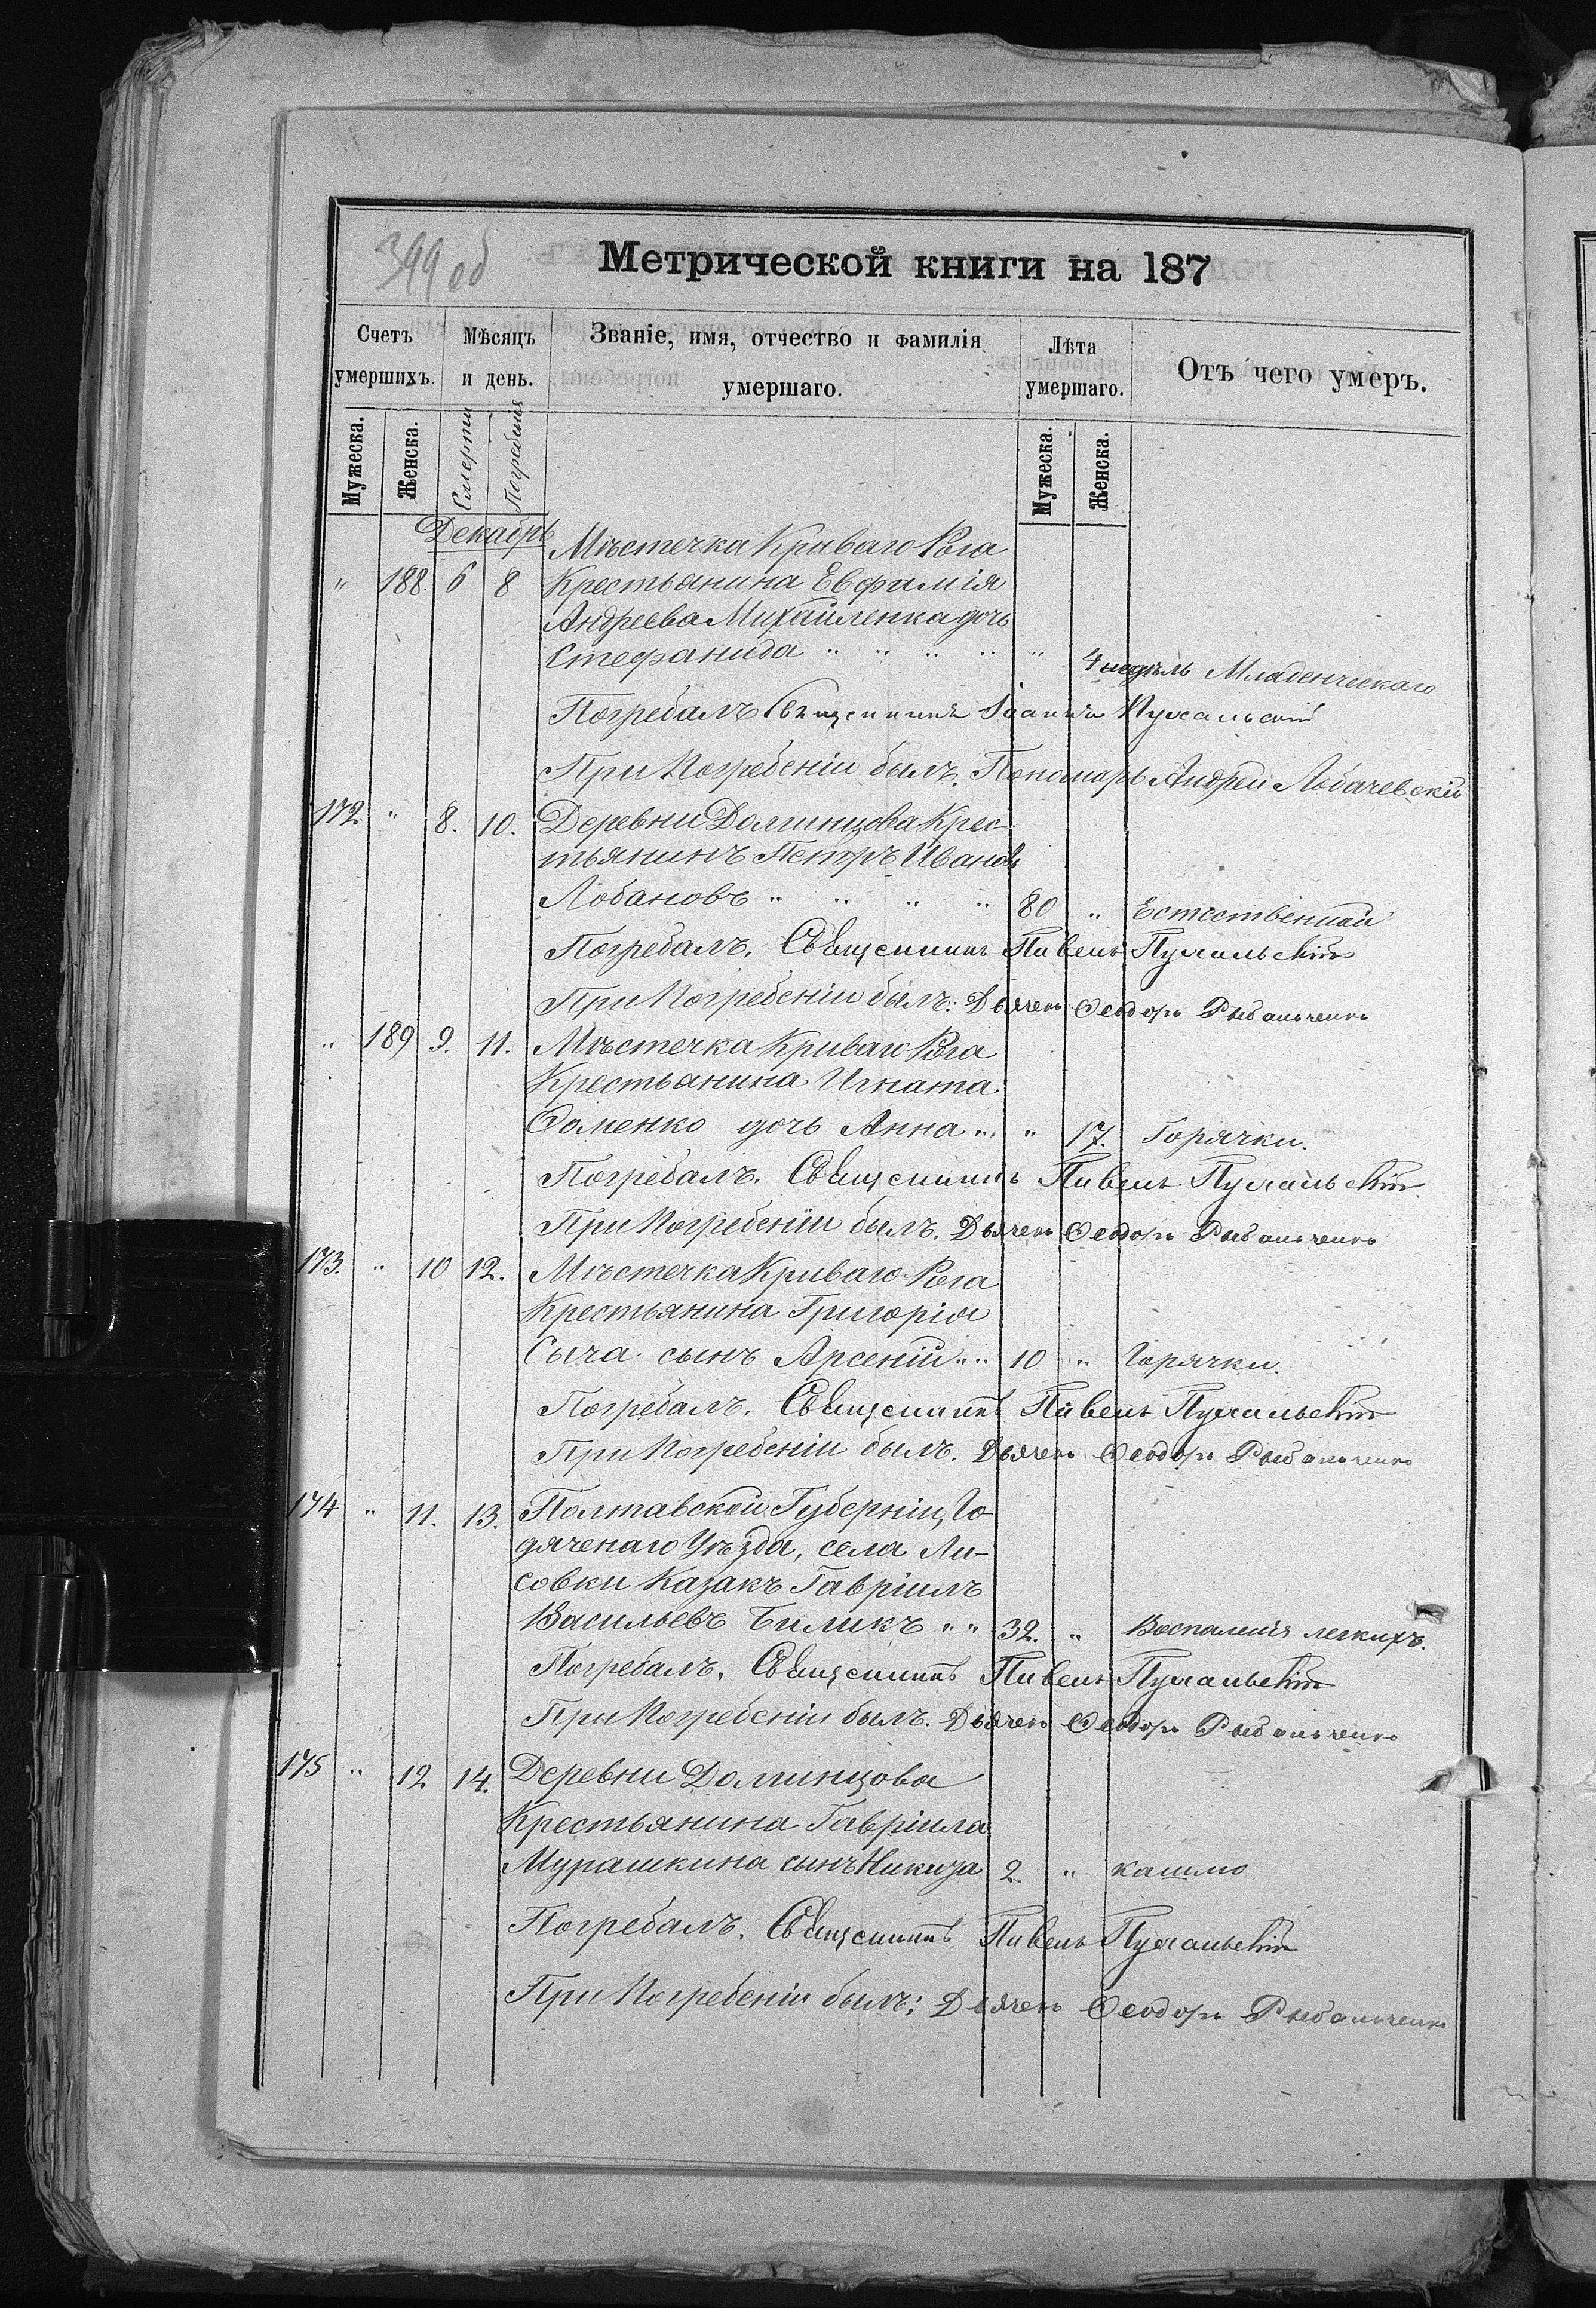 399 об
Метрической книги на 187
Счетъ умершихъ.
Мѣсяцъ и день.
Званіе, имя, отчество и фамилія умершаго.
Лѣта умершаго.
Отъ чего умеръ.
Мужеска. Женска. Смерти Погребенія Мужеска. Женска.
Декабрь
Мѣстечка Криваго Рога
" 188. 6 8 Крестьянина Евфимія
Андреева Михайленка дочь
Стефанида " " " " " 4 недѣль Младенческаго
Погребалъ Священникъ Іоаннъ Пухальскій
При Погребеніи былъ. Пономарь Андрей Лобачевскій
172. " 8. 10. Деревни Долинцова Крес-
тьянинъ Петръ Ивановъ
Лобановъ " " " " 80 " Естественной
Погребалъ. Священникъ Павелъ Пухальскій
При Погребеніи былъ: Дьячекъ Ѳеодоръ Рыбальченко
" 189 9. 11. Мѣстечка Криваго Рога
Крестьянина Игната
Ѳоменко дочь Анна " " 17. Горячки.
Погребалъ. Священникъ Павелъ Пухальскій
При Погребеніи былъ. Дьячекъ Ѳеодоръ Рыбальченко
173. " 10 12. Мѣстечка Криваго Рога
Крестьянина Григорія
Сыча сынъ Арсеній " " 10 " Горячки.
Погребалъ. Священникъ Павелъ Пухальскій
При Погребеніи былъ. Дьячекъ Ѳеодоръ Рыбальченко
174 " 11. 13. Полтавской Губерніи, Го-
дяченаго Уѣзда, села Ли-
совки Казакъ Гавріилъ
Васильевъ Биликъ " " 32. " Воспаленія легкихъ.
Погребалъ. Священникъ Павелъ Пухальскій
При Погребеніи былъ. Дьячекъ Ѳеодоръ Рыбальченко
175 " 12 14. Деревни Долинцова
Крестьянина Гавріила
Мурашкина сынъ Никита 2. " кашлю
Погребалъ. Священникъ Павелъ Пухальскій
При Погребеніи былъ: Дьячекъ Ѳеодоръ Рыбальченко